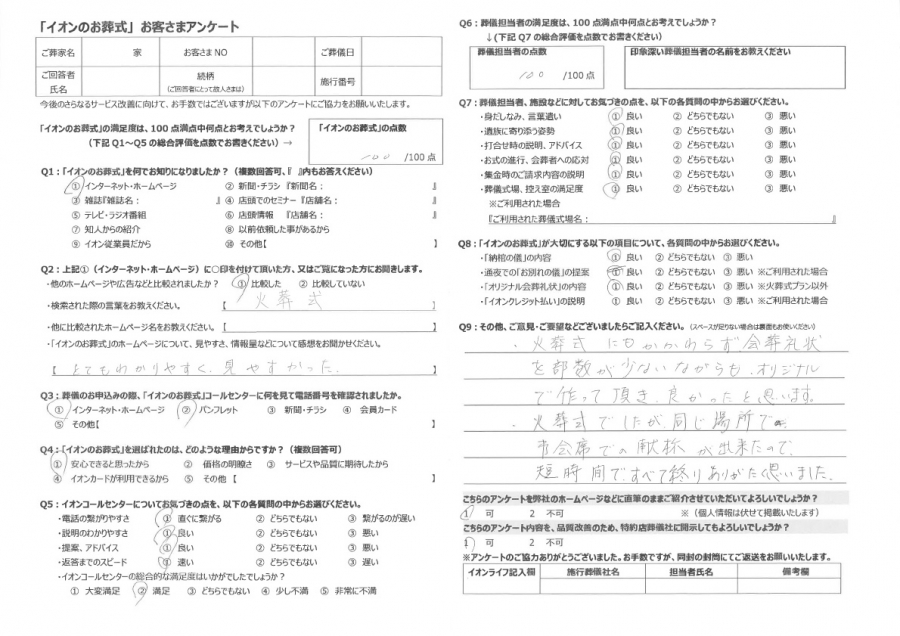 「イオンのお葬式」お客さまアンケート
ご葬家名 家 お客さまNO ご葬儀日
ご回答者氏名 続柄 (ご回答者にとって故人さまは) 施行番号
今後のさらなるサービス改善に向けて、お手数ではございますが以下のアンケートにご協力をお願いいたします。
「イオンのお葬式」の満足度は、100点満点中何点とお考えでしょうか?
(下記Q1～Q5の総合評価を点数でお書きください) →
「イオンのお葬式」の点数
100 /100点
Q1:「イオンのお葬式」を何でお知りになりましたか?(複数回答可、『 』内もお答えください)
① インターネット・ホームページ ② 新聞・チラシ『新聞名: 』
③ 雑誌『雑誌名: 』 ④ 店頭でのセミナー『店舗名: 』
⑤ テレビ・ラジオ番組 ⑥ 店頭情報 『店舗名: 』
⑦ 知人からの紹介 ⑧ 以前依頼した事があるから
⑨ イオン従業員だから ⑩ その他【 】
Q2:上記①(インターネット・ホームページ)に○印を付けて頂いた方、又はご覧になった方にお聞きします。
・他のホームページや広告などと比較されましたか? ① 比較した ② 比較していない
・検索された際の言葉をお教えください。 【 火葬式 】
・他に比較されたホームページ名をお教えください。【 】
・「イオンのお葬式」のホームページについて、見やすさ、情報量などについて感想をお聞かせください。
【 とてもわかりやすく、見やすかった。 】
Q3:葬儀のお申込みの際、「イオンのお葬式」コールセンターに何を見て電話番号を確認されましたか。
① インターネット・ホームページ ② パンフレット ③ 新聞・チラシ ④ 会員カード
⑤ その他【 】
Q4:「イオンのお葬式」を選ばれたのは、どのような理由からですか?(複数回答可)
① 安心できると思ったから ② 価格の明瞭さ ③ サービスや品質に期待したから
④ イオンカードが利用できるから ⑤ その他 【 】
Q5:イオンコールセンターについてお気づきの点を、以下の各質問の中からお選びください。
・電話の繋がりやすさ ① 直ぐに繋がる ② どちらでもない ③ 繋がるのが遅い
・説明のわかりやすさ ① 良い ② どちらでもない ③ 悪い
・提案、アドバイス ① 良い ② どちらでもない ③ 悪い
・返答までのスピード ① 速い ② どちらでもない ③ 遅い
・イオンコールセンターの総合的な満足度はいかがでしたでしょうか?
① 大変満足 ② 満足 ③ どちらでもない ④ 少し不満 ⑤ 非常に不満
Q6:葬儀担当者の満足度は、100点満点中何点とお考えでしょうか?
↓(下記Q7の総合評価を点数でお書きください)
葬儀担当者の点数 印象深い葬儀担当者の名前をお教えください
100 /100点
Q7:葬儀担当者、施設などに対してお気づきの点を、以下の各質問の中からお選びください。
・身だしなみ、言葉遣い ① 良い ② どちらでもない ③ 悪い
・遺族に寄り添う姿勢 ① 良い ② どちらでもない ③ 悪い
・打合せ時の説明、アドバイス ① 良い ② どちらでもない ③ 悪い
・お式の進行、会葬者への応対 ① 良い ② どちらでもない ③ 悪い
・集金時のご請求内容の説明 ① 良い ② どちらでもない ③ 悪い
・葬儀式場、控え室の満足度 ① 良い ② どちらでもない ③ 悪い
※ご利用された場合
『ご利用された葬儀式場名: 』
Q8:「イオンのお葬式」が大切にする以下の項目について、各質問の中からお選びください。
・「納棺の儀」の内容 ① 良い ② どちらでもない ③ 悪い
・通夜での「お別れの儀」の提案 ① 良い ② どちらでもない ③ 悪い ※ご利用された場合
・「オリジナル会葬礼状」の内容 ① 良い ② どちらでもない ③ 悪い ※火葬式プラン以外
・「イオンクレジット払い」の説明 ① 良い ② どちらでもない ③ 悪い ※ご利用された場合
Q9:その他、ご意見・ご要望などございましたらご記入ください。(スペースが足りない場合は裏面もお使いください)
・火葬式にもかかわらず、会葬礼状
を部数が少ないながらも、オリジナル
で作って頂き、良かったと思います。
・火葬式でしたが、同じ場所で
会席での献杯が出来たので、
短時間ですべて終りありがたく思いました。
こちらのアンケートを弊社のホームページなどに直筆のままご紹介させていただいてよろしいでしょうか?
1 可 2 不可 ※(個人情報は伏せて掲載いたします)
こちらのアンケート内容を、品質改善のため、特約店葬儀社に開示してもよろしいでしょうか?
1 可 2 不可
※アンケートのご協力ありがとうございました。お手数ですが、同封の封筒にてご返送をお願いいたします。
イオンライフ記入欄 施行葬儀社名 担当者氏名 備考欄